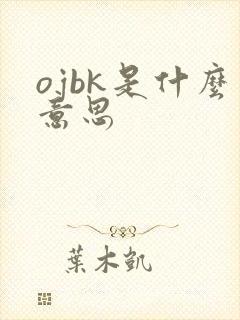 ojbk是什麽
意思
葉木凱